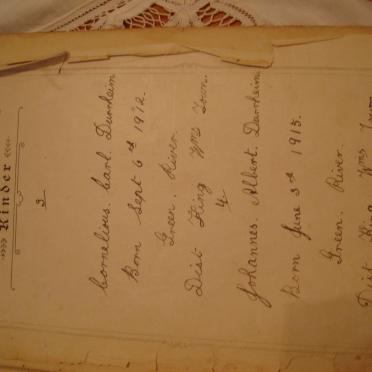 Kinder
3
Cornelius. Carl. Durrheim
Born Sept 6th 1912.
Green. River.
Dist King Wms Town.
4
Johannes. Albert. Durrheim
Born June 3rd 1915.
Green. River.
Dist King Wms Town